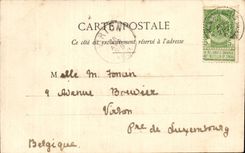 CARTE POSTALE
Ce côté est exclusivement réservé à l'adresse
Melle M. Fonan
9 Avenue Bouvier
Virton
Pce de Luxembourg
Belgique